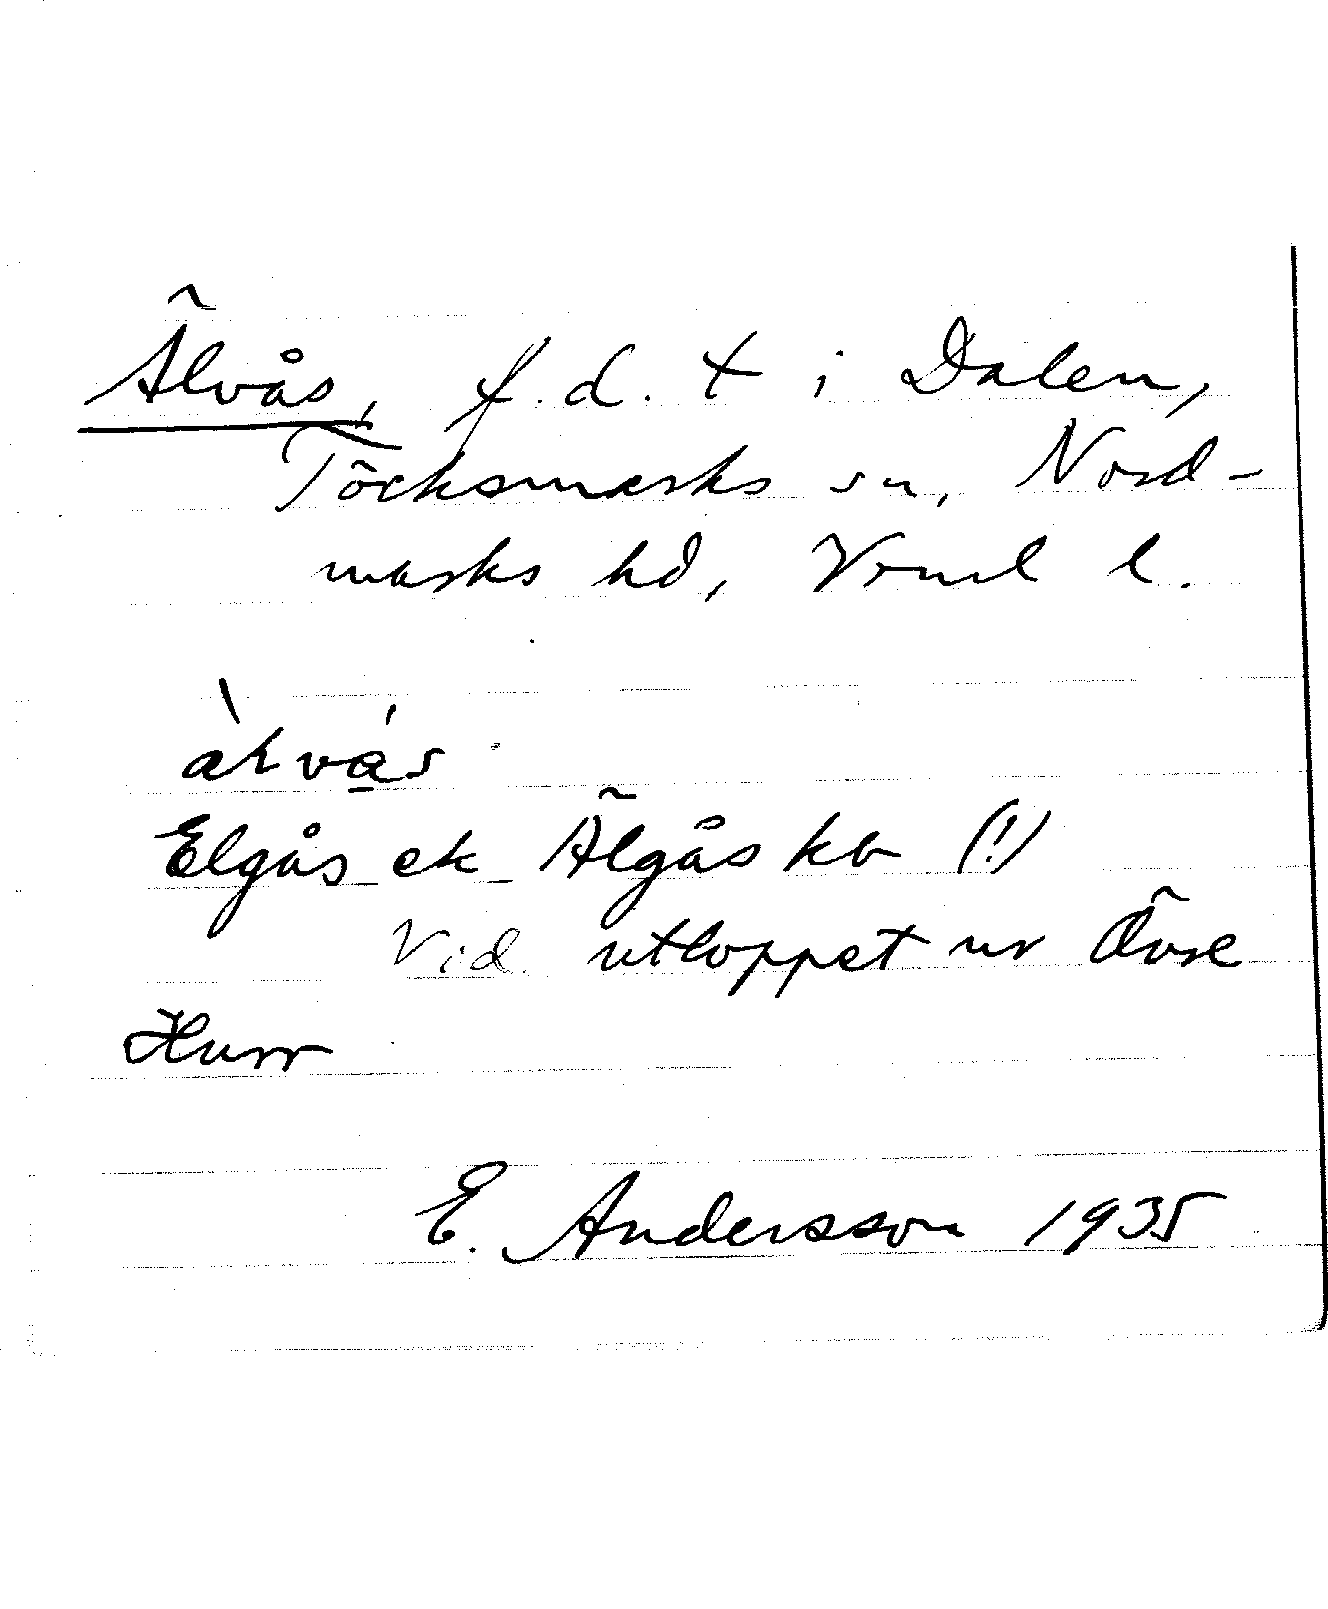 Älvås, f.d. t i Dalen,
Töcksmarks sn, Nord-
marks hd, Vrml l.
Elgås ek Älgås kb (!)
Vid utloppet ur Övre
Hurr
E. Andersson 1935